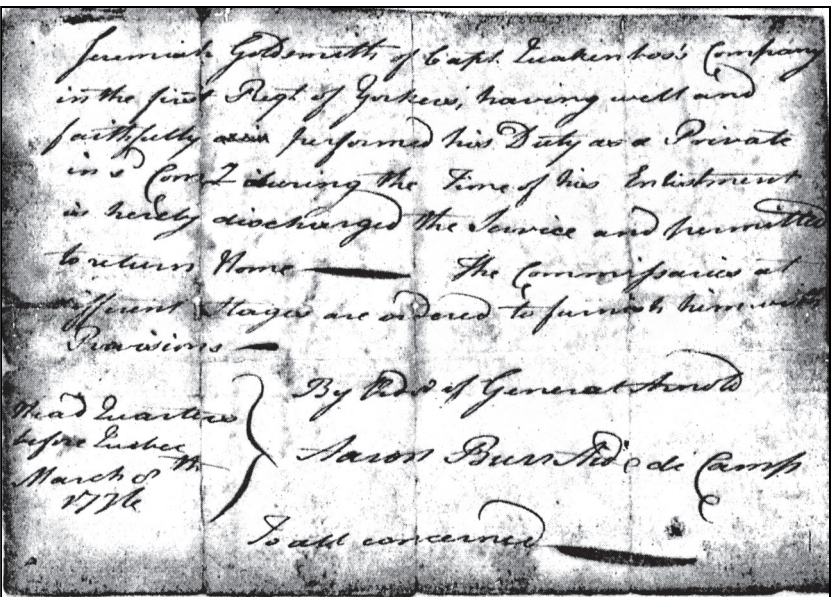 Jeremiah Goldsmith of Capt. Quakenbos's Company
in the first Regt. of Yorkers, having well and
faithfully performed his Duty as a Private
in sd. Com. during the Time of his Enlistment
is hereby discharged the Service and permitted
to return Home — The Commissaries at
different Stages are ordered to furnish him with
Provisions —
By Order of General Arnold
Head Quarters
before Quebec
March 8 th
1776
Aaron Burr Aid de Camp
To all concerned